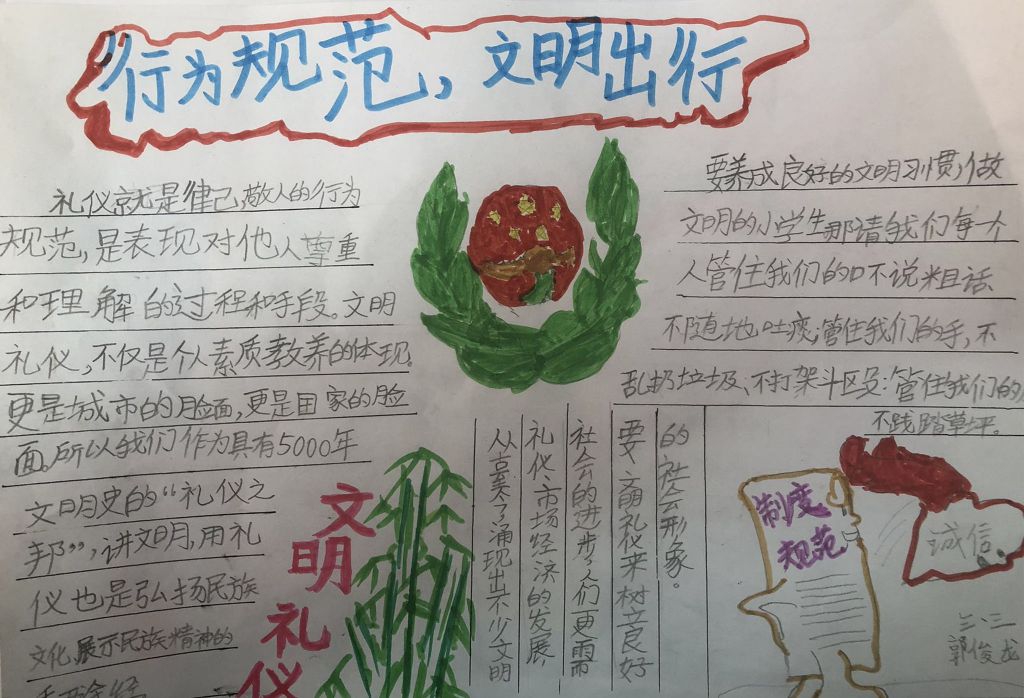 行为规范，文明出行
礼仪就是律己，敬人的行为
规范，是表现对他人尊重
和理解的过程和手段。文明
礼仪，不仅是个人素质教养的体现。
更是城市的脸面，更是国家的脸
面。所以我们作为具有5000年
文明史的“礼仪之
邦”，讲文明，用礼
仪也是弘扬民族
文化，展示民族精神的
文明礼仪
要养成良好的文明习惯，做
文明的小学生那请我们每一个
人管住我们的口不说粗话
不随地吐痰；管住我们的手，不
乱扔垃圾、不打架斗区殳；管住我们的
不践踏草坪。
的社会形象。
要文明礼仪来树立良好
社会的进步，人们更需
礼仪，市场经济的发展，
从古至今涌现出不少文明
制度
规范
诚信
三、三
郭俊龙